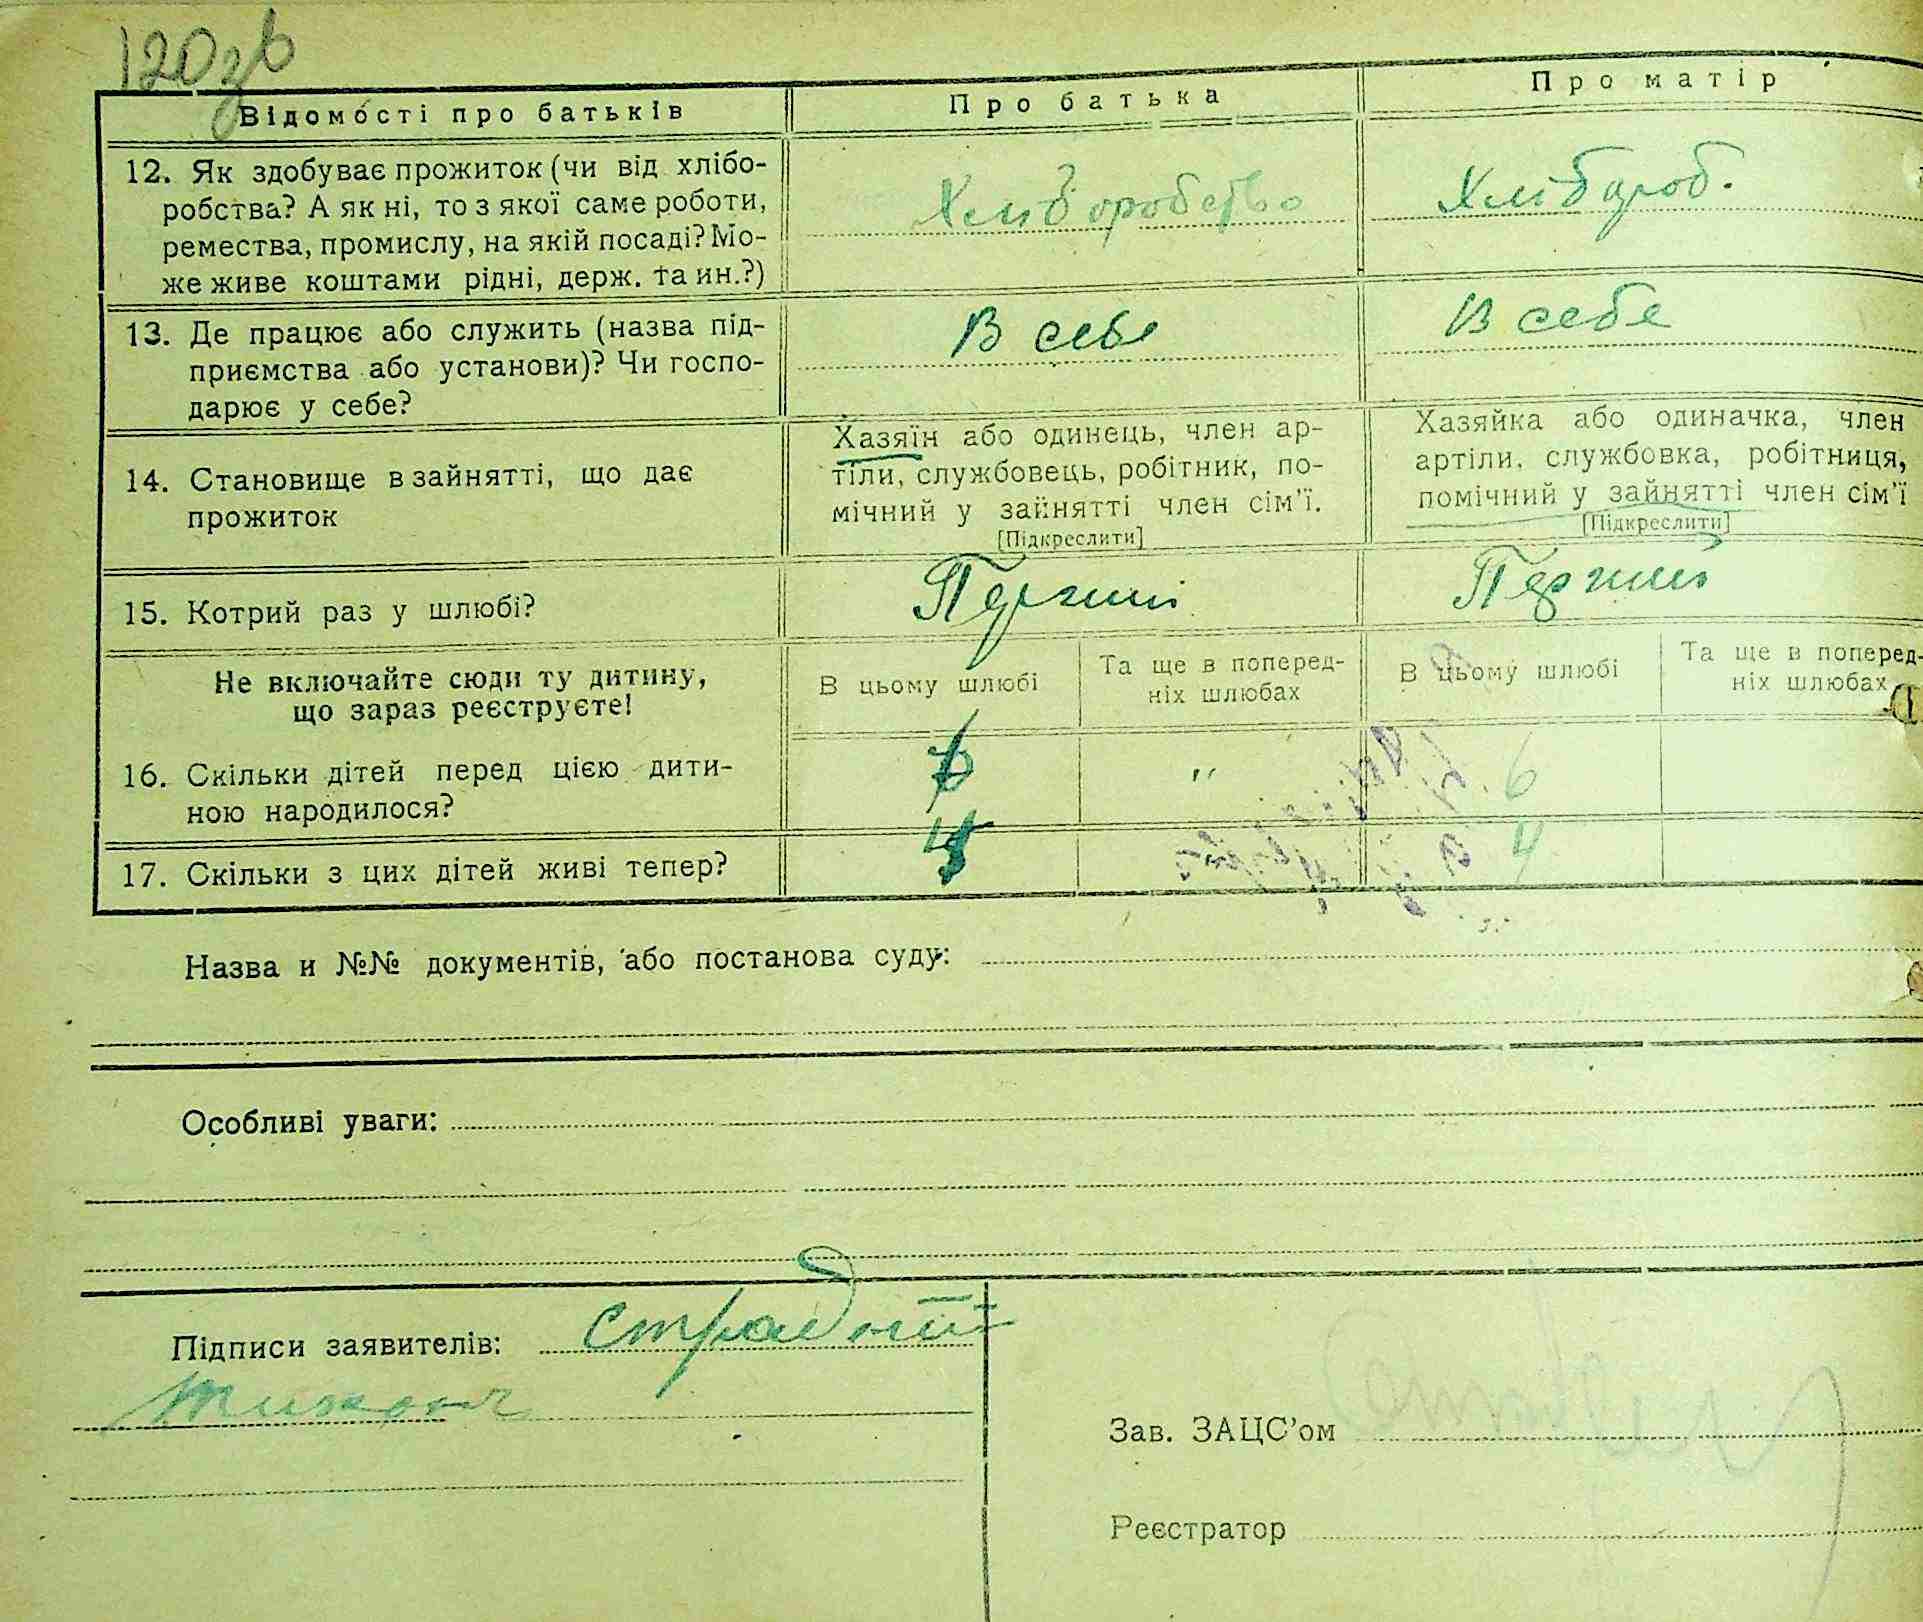 120зв
Відомості про батьків
Про батька
Про матір
12. Як здобуває прожиток (чи від хлібо-
робства? А як ні, то з якої саме роботи,
ремества, промислу, на якій посаді? Мо-
же живе коштами рідні, держ. та ин.?)
Хліборобство
Хлібороб.
13. Де працює або служить (назва під-
приємства або установи)? Чи госпо-
дарює у себе?
В себе
В себе
14. Становище в зайнятті, що дає
прожиток
Хазяїн або одинець, член ар-
тіли, службовець, робітник, по-
мічний у зайнятті член сім'ї.
[Підкреслити]
Хазяйка або одиначка, член
артіли, службовка, робітниця,
помічний у зайнятті член сім'ї
[Підкреслити]
15. Котрий раз у шлюбі?
Перший
Перший
Не включайте сюди ту дитину,
що зараз реєструєте!
В цьому шлюбі
Та ще в поперед-
ніх шлюбах
В цьому шлюбі
Та ще в поперед-
ніх шлюбах
16. Скільки дітей перед цією дити-
ною народилося?
6
"
6
17. Скільки з цих дітей живі тепер?
4
4
Назва и №№ документів, або постанова суду:
Особливі уваги:
Підписи заявителів:
Зав. ЗАЦС'ом
Реєстратор